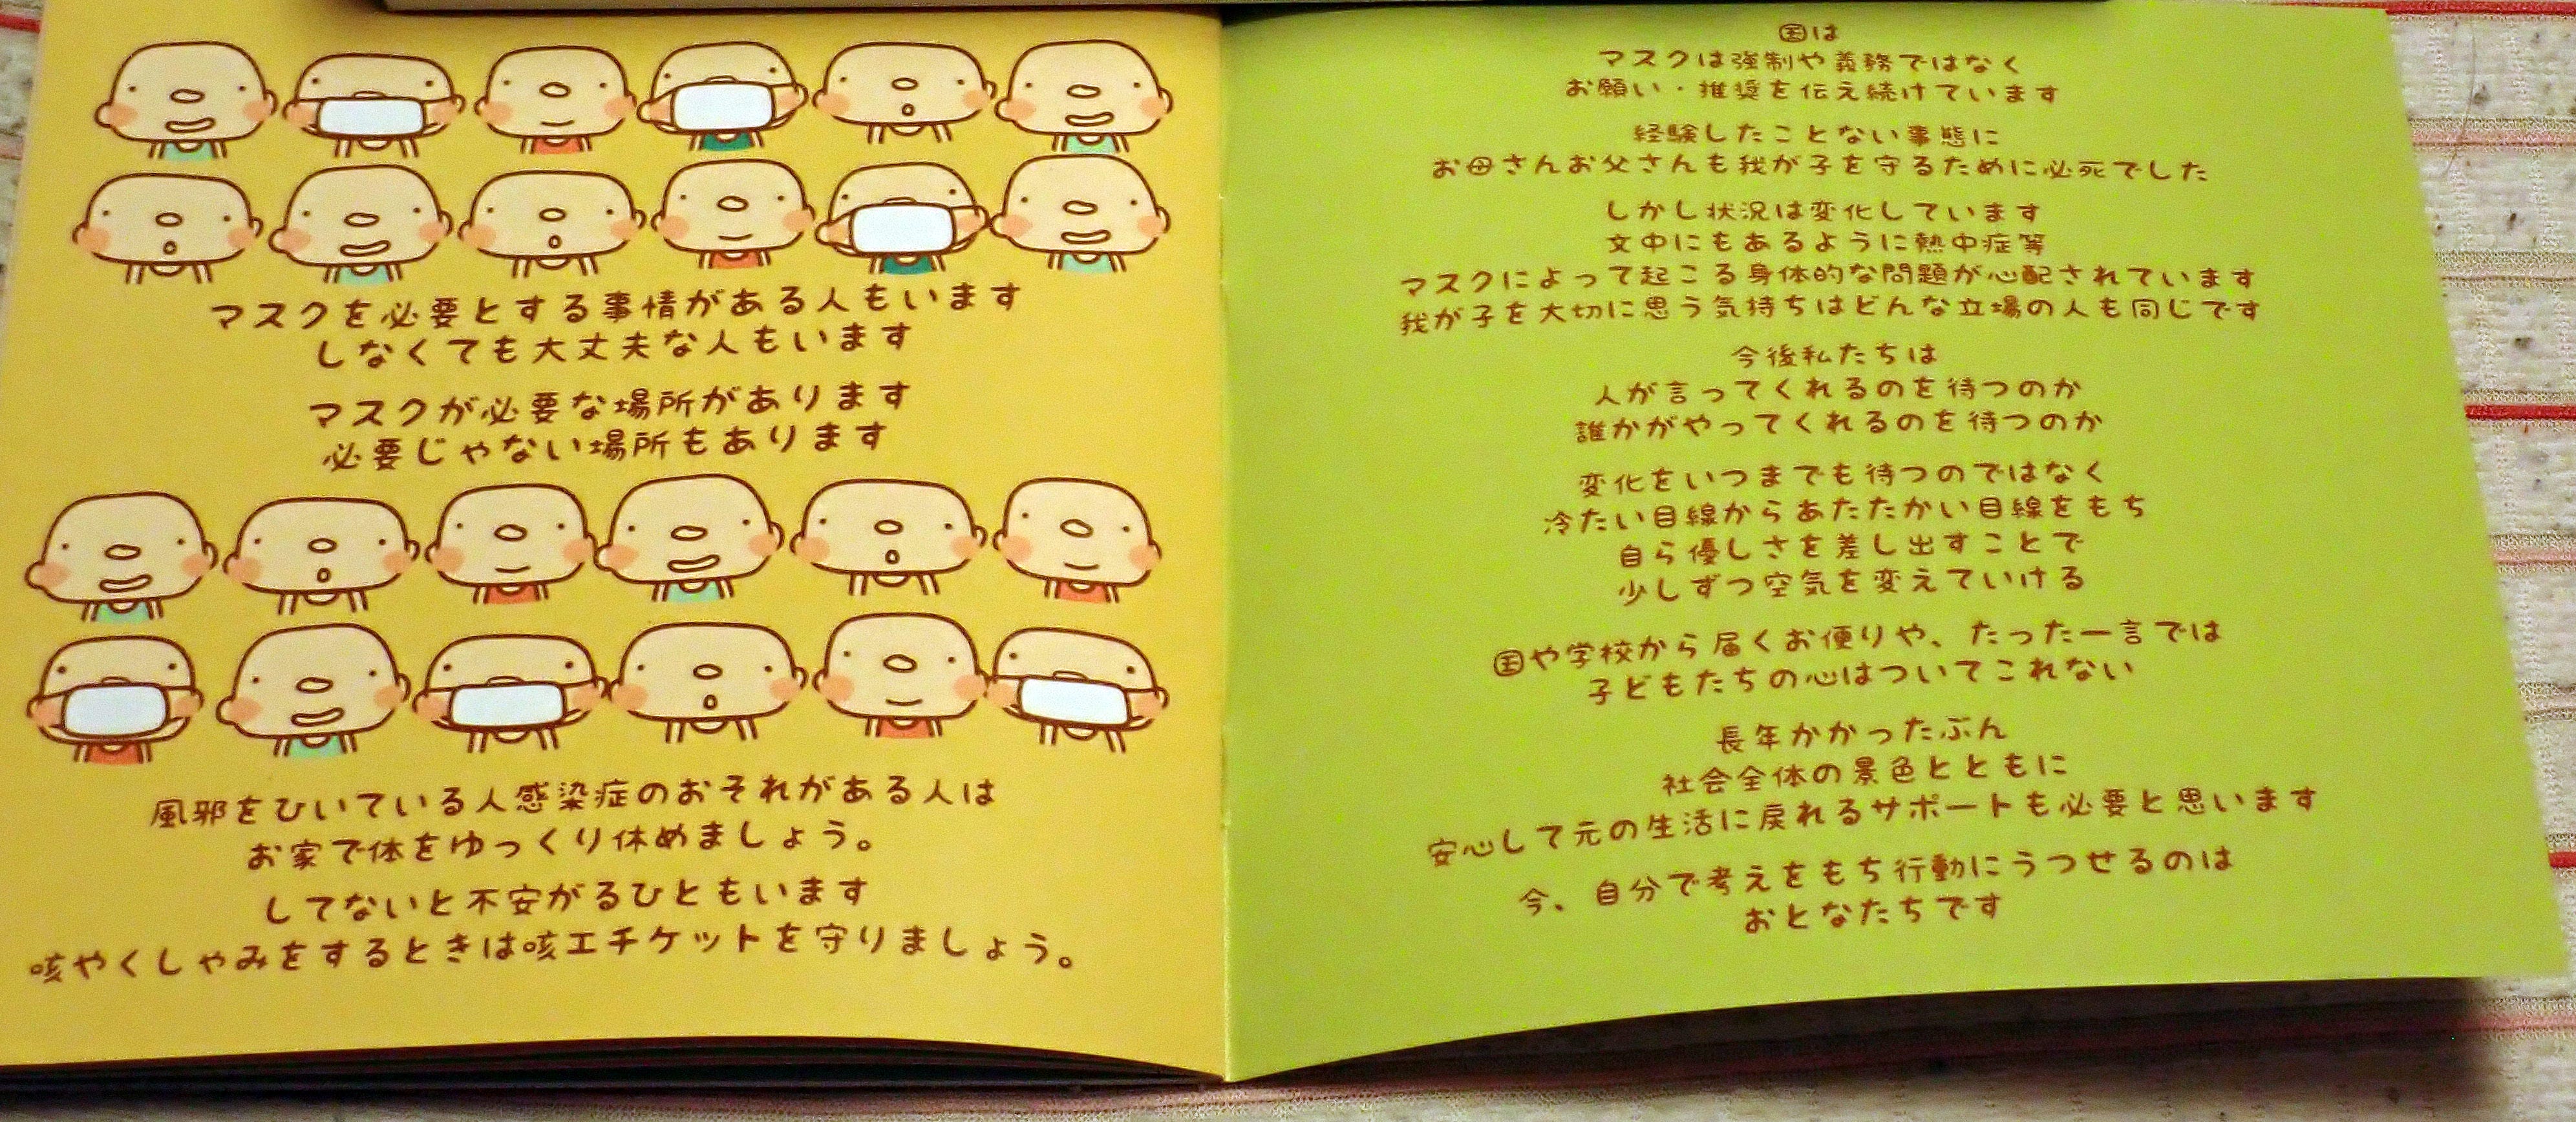 マスクを必要とする事情がある人もいます
しなくても大丈夫な人もいます
マスクが必要な場所があります
必要じゃない場所もあります
風邪をひいている人感染症のおそれがある人は
お家で体をゆっくり休めましょう。
してないと不安がるひともいます
咳やくしゃみをするときは咳エチケットを守りましょう。
国は
マスクは強制や義務ではなく
お願い・推奨を伝え続けています
経験したことない事態に
お母さんお父さんも我が子を守るために必死でした
しかし状況は変化しています
文中にもあるように熱中症等
マスクによって起こる身体的な問題が心配されています
我が子を大切に思う気持ちはどんな立場の人も同じです
今後私たちは
人が言ってくれるのを待つのか
誰かがやってくれるのを待つのか
変化をいつまでも待つのではなく
冷たい目線からあたたかい目線をもち
自ら優しさを差し出すことで
少しずつ空気を変えていける
国や学校から届くお便りや、たった一言では
子どもたちの心はついてこれない
長年かかったぶん
社会全体の景色とともに
安心して元の生活に戻れるサポートも必要と思います
今、自分で考えをもち行動にうつせるのは
おとなたちです